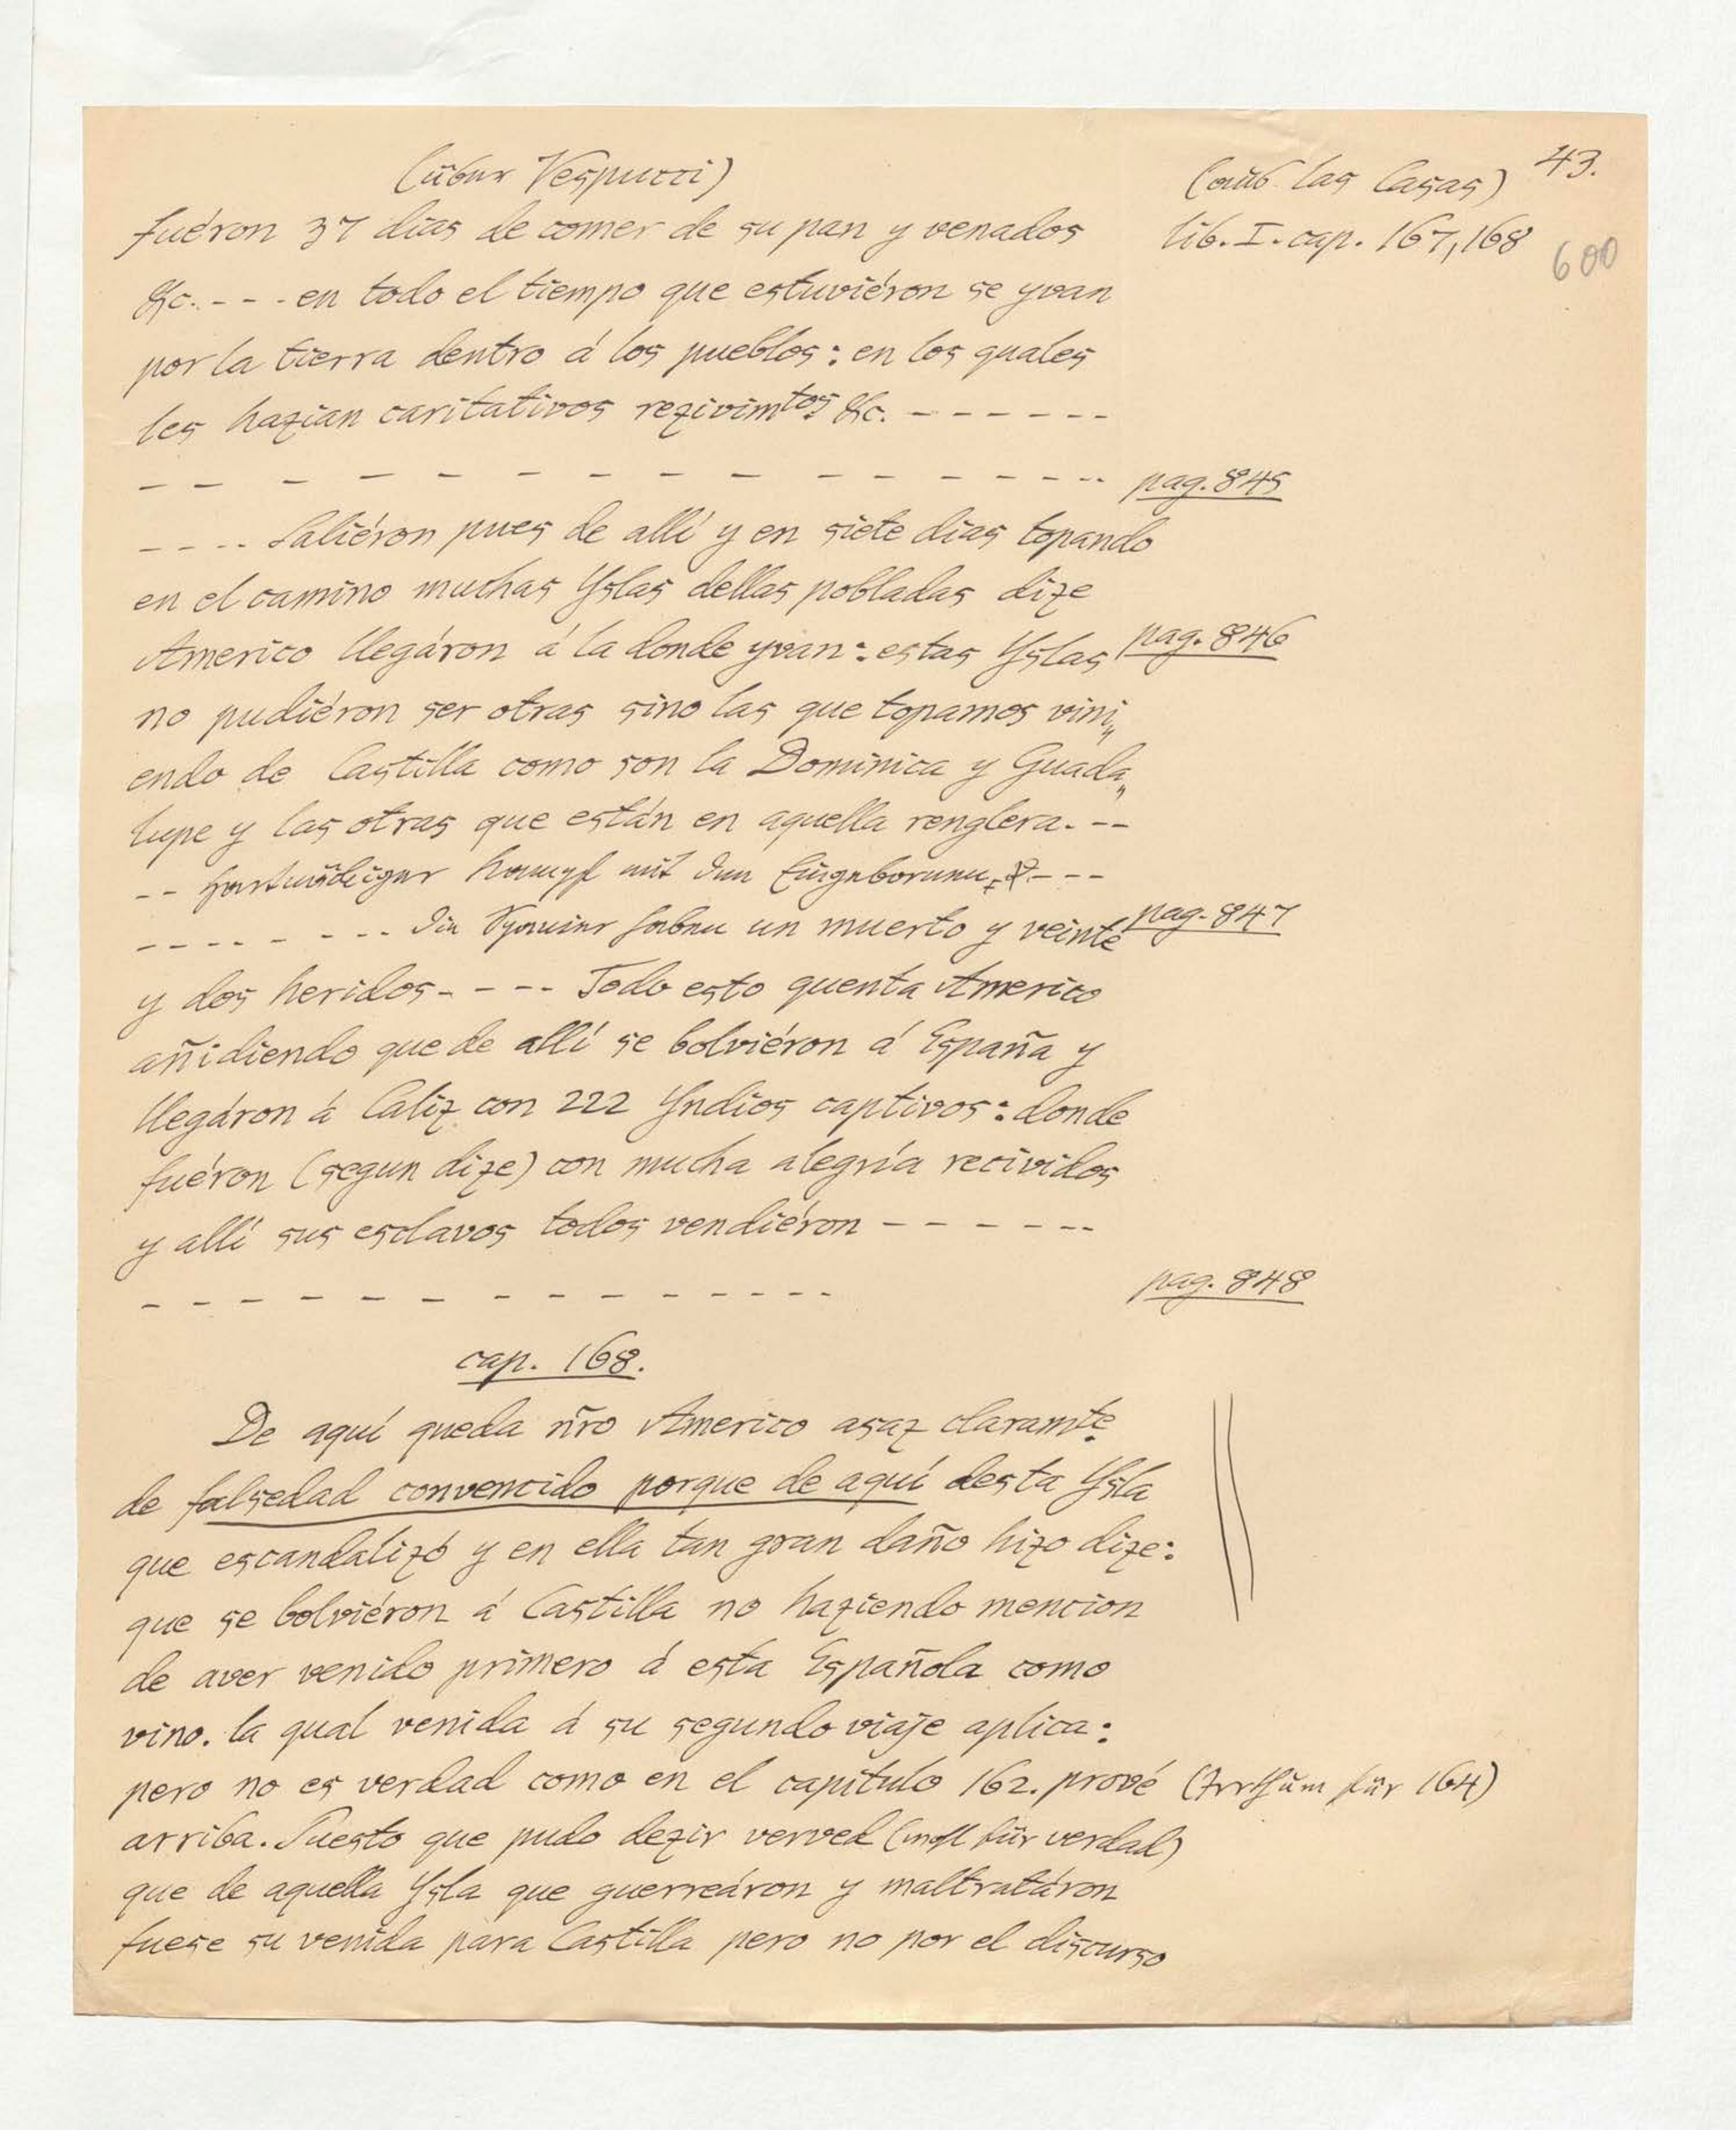 (über Vespucci)
(aus las Casas) 43.
fuéron 37 dias de comer de su pan y venados
lib. I. cap. 167, 168
600
&c. - - - en todo el tiempo que estuviéron se yvan
por la tierra dentro á los pueblos: en los quales
les hazian caritativos rezivimtos &c. - - - - - -
- - - - - - - - - - - - - - - - pag. 845
- - - - Saliéron pues de allí y en siete dias topando
en el camino muchas Yslas dellas pobladas dize
Americo llegáron á la donde yvan: estas Yslas pag. 846
no pudiéron ser otras sino las que topamos vini„
endo de Castilla como son la Dominica y Guada„
lupe y las otras que están en aquella renglera. - -
- - hartnäckiger Kampf mit den Eingeborenen - - -
- - - - - - - - die Spanier haben un muerto y veinte pag. 847
y dos heridos - - - - Todo esto quenta Americo
añidiendo que de allí se bolviéron á España y
llegáron á Caliz con 222 Yndios captivos: donde
fuéron (segun dize) con mucha alegría recividos
y allí sus esclavos todos vendiéron - - - - - -
- - - - - - - - - - - - - - - pag. 848
cap. 168.
De aquí queda ñro Americo asaz claramte
de falsedad convencido porque de aquí desta Ysla
que escandalizó y en ella tan gran daño hizo dize:
que se bolviéron á Castilla no haziendo mencion
de aver venido primero á esta Española como
vino. la qual venida á su segundo viaje aplica:
pero no es verdad como en el capítulo 162. prové (Irrthum für 164)
arriba. Puesto que pudo dezir verved (wohl für verdad)
que de aquella Ysla que guerreáron y maltratáron
fuese su venida para Castilla pero no por el discurso